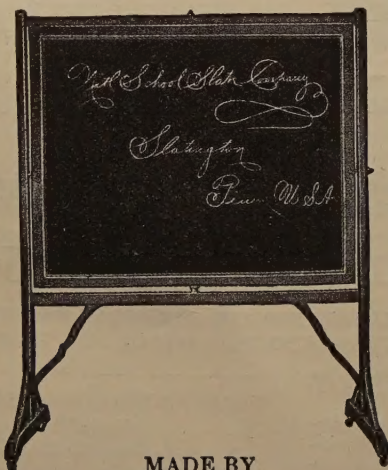 Natl School Slate Company
Slatington
Penn U S A
MADE BY